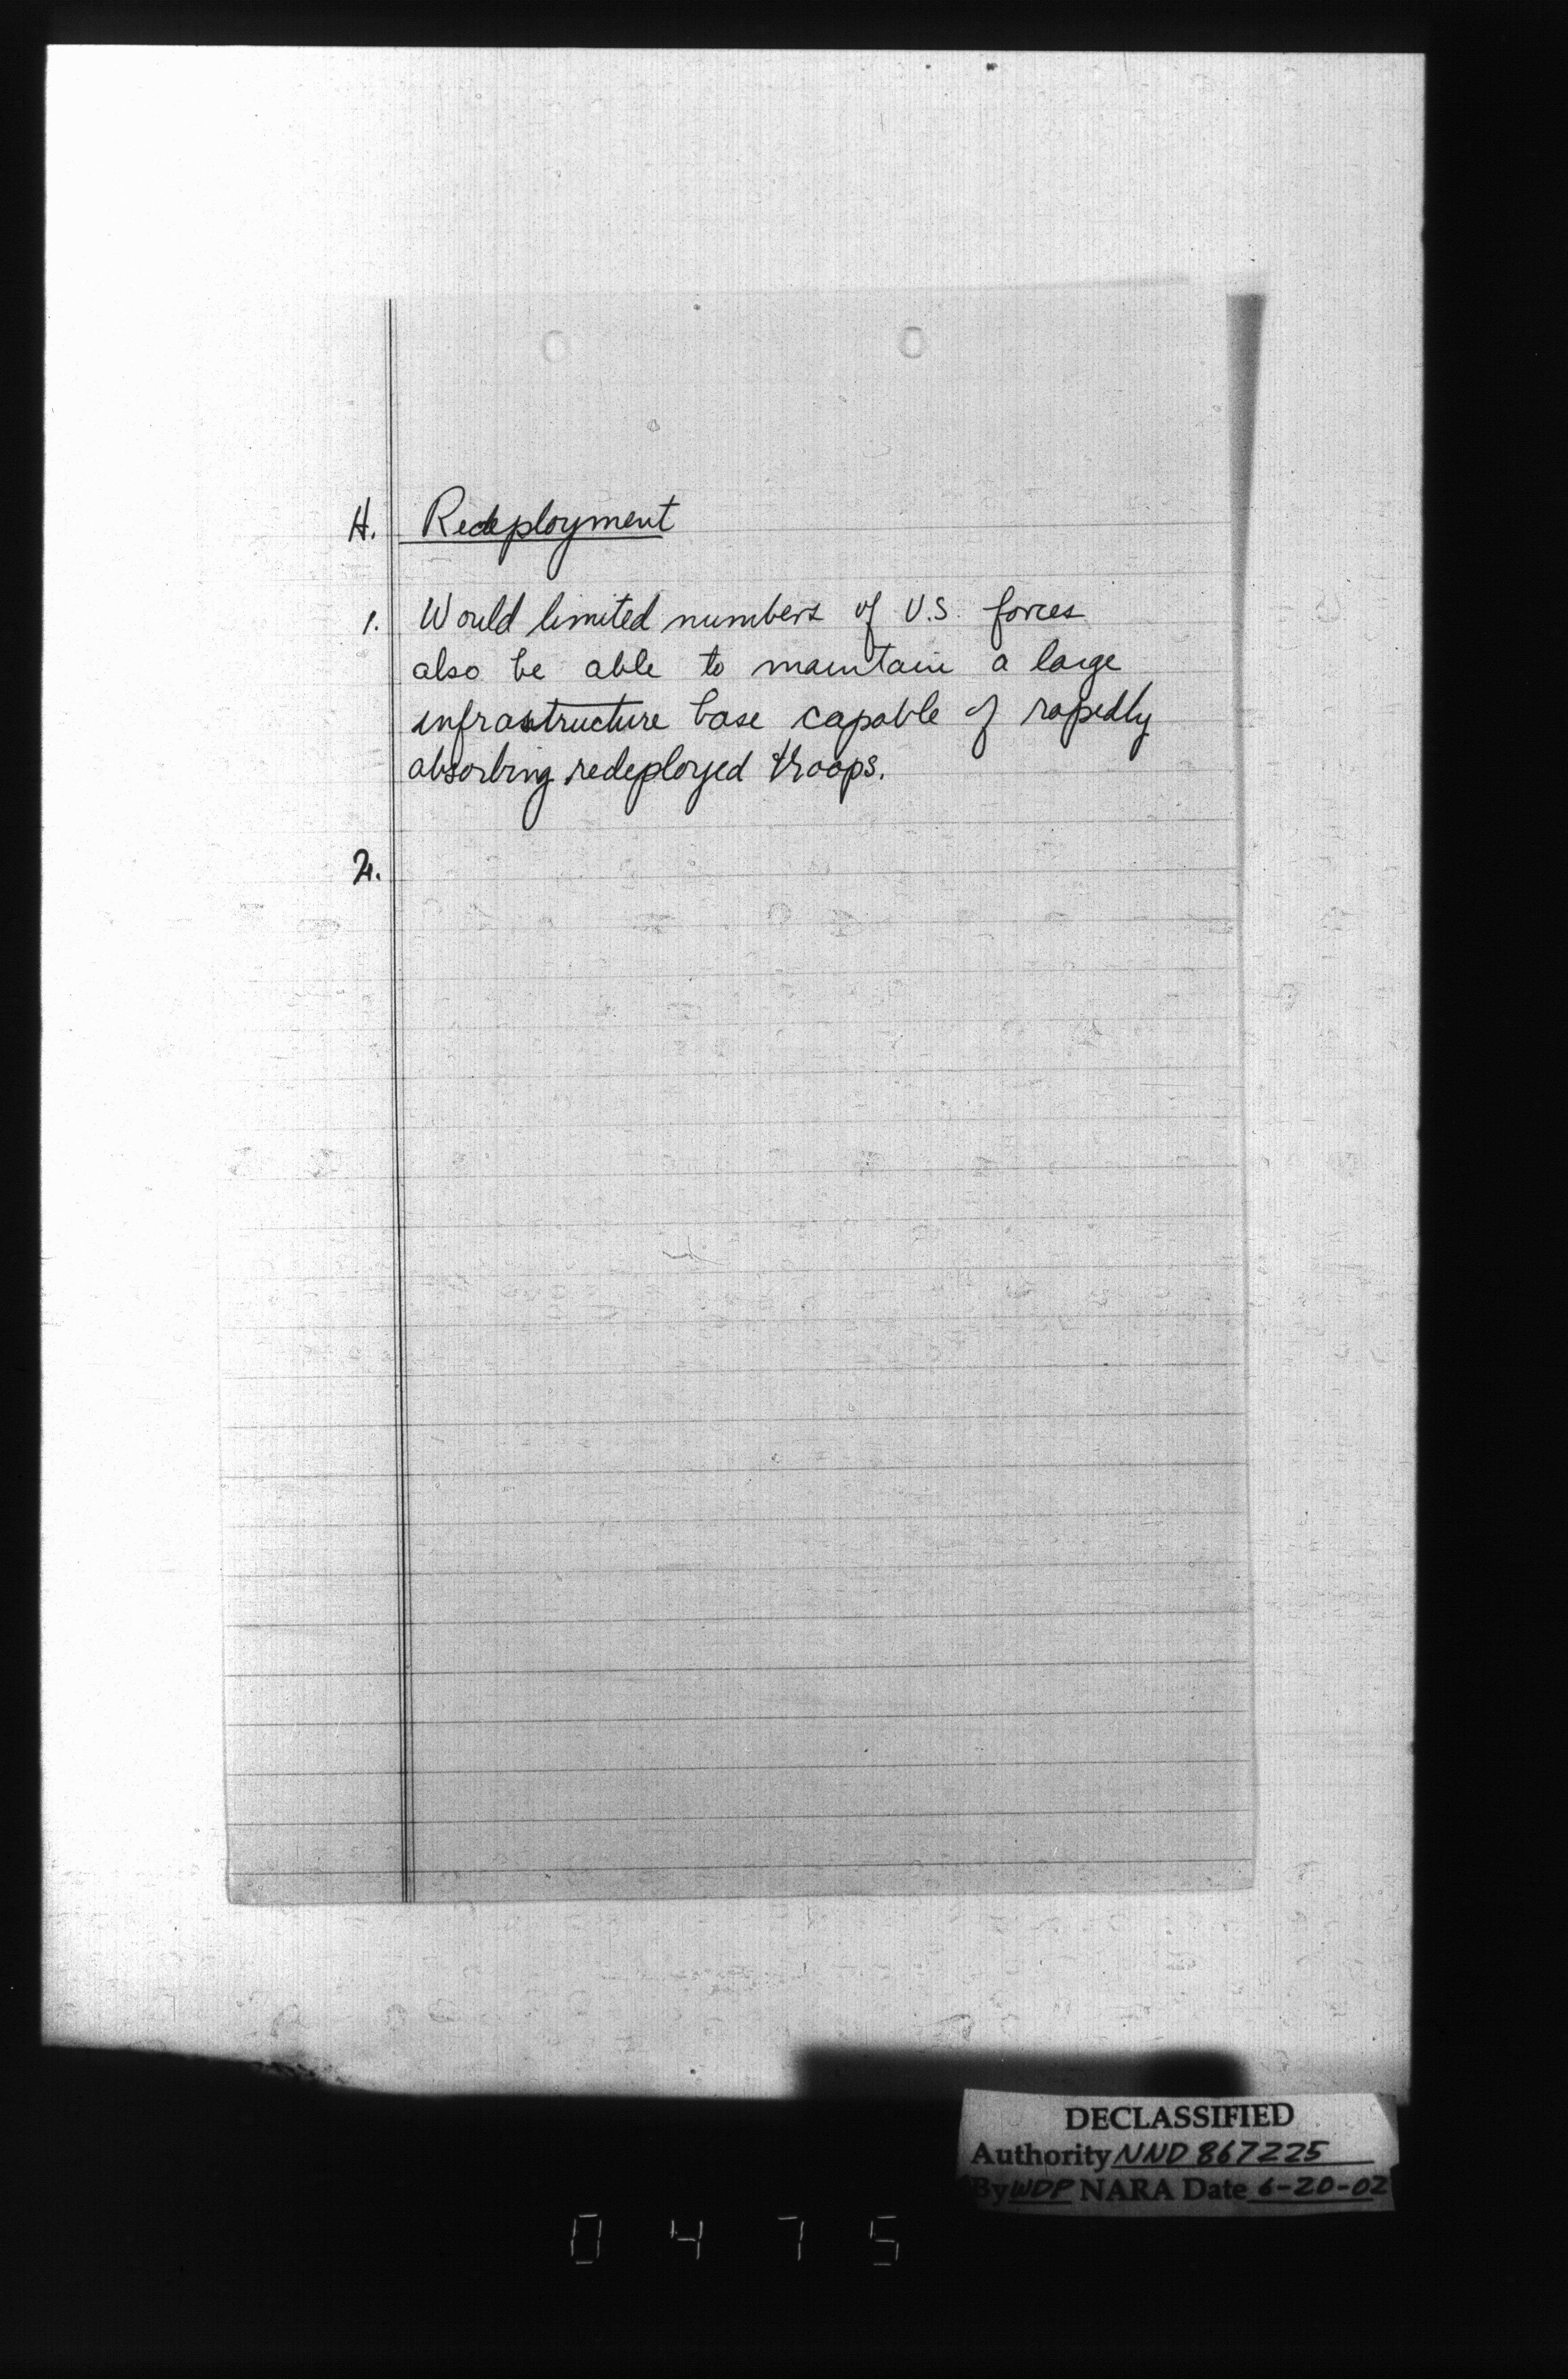 H. Redeployment
1. Would limited numbers of U.S. forces
also be able to maintain a large
infrastructure base capable of rapedly
absorbing redeployed troops.
2.
DECLASSIFIED
Authority NND 867225
By WDP NARA Date 6-20-02
0475